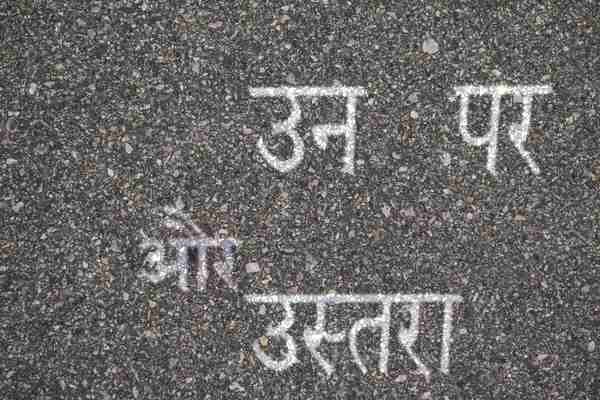 उन पर
और
उस्तरा